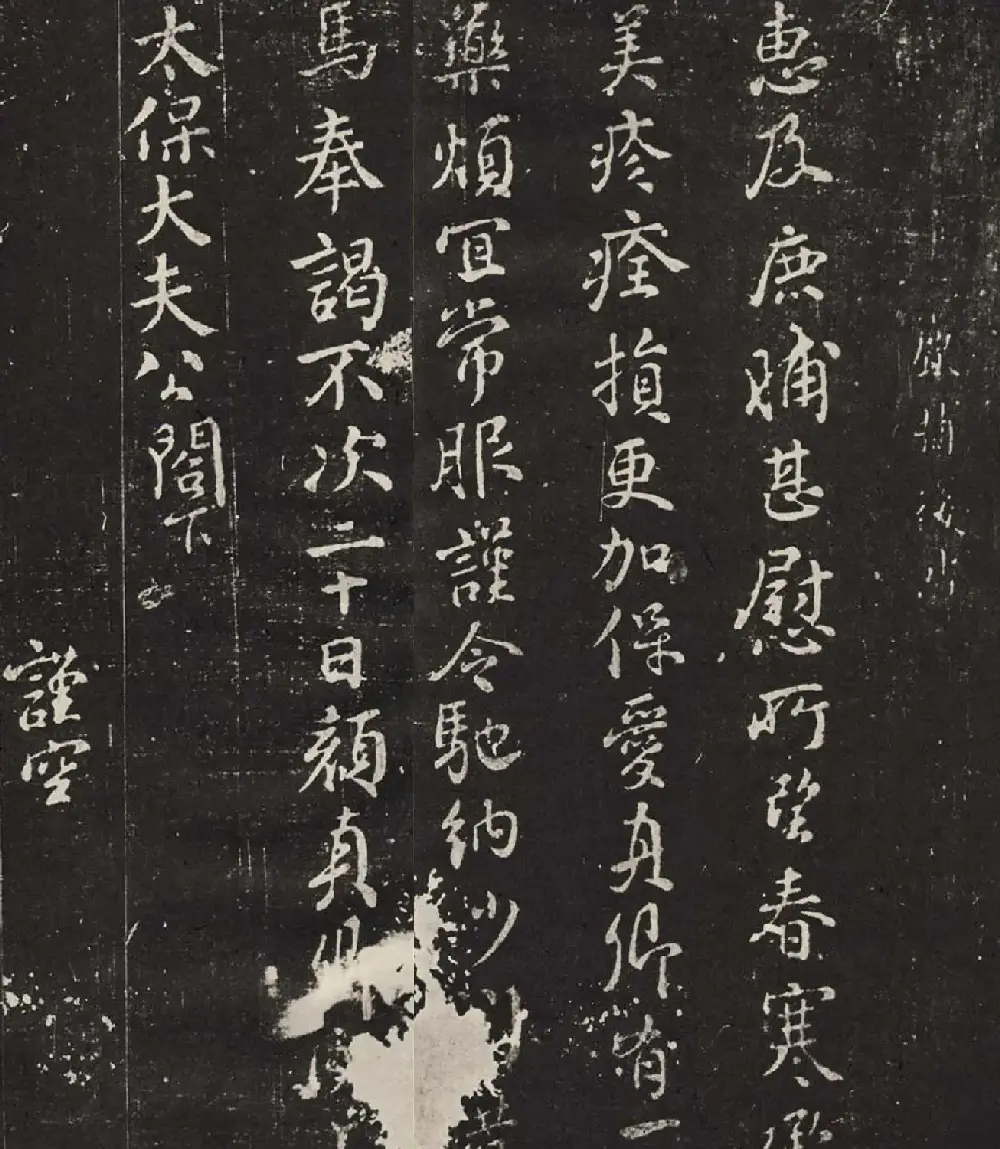 惠及鹿脯甚慰所望春寒承
美疹痊損更加保愛真卿有一
藥煩宜常服謹令馳納少
馬奉謁不次二十日顏真卿
太保大夫公閤下
謹空